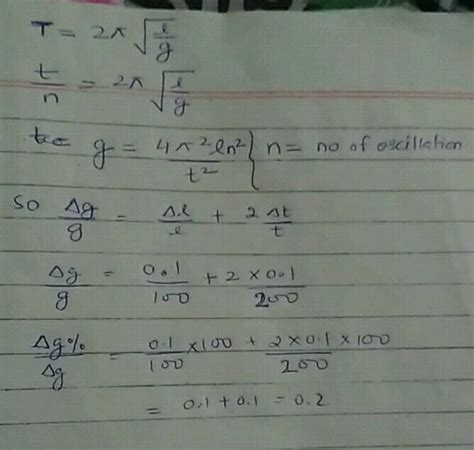 T = 2π √(l/g)
t/n = 2π √(l/g)
g = 4π²ln²/t² } n = no of oscillation
So Δg/g = Δl/l + 2Δt/t
Δg/g = 0.1/100 + 2×0.1/200
Δg%/Δg = 0.1/100 ×100 + 2×0.1×100/200
= 0.1 + 0.1 = 0.2